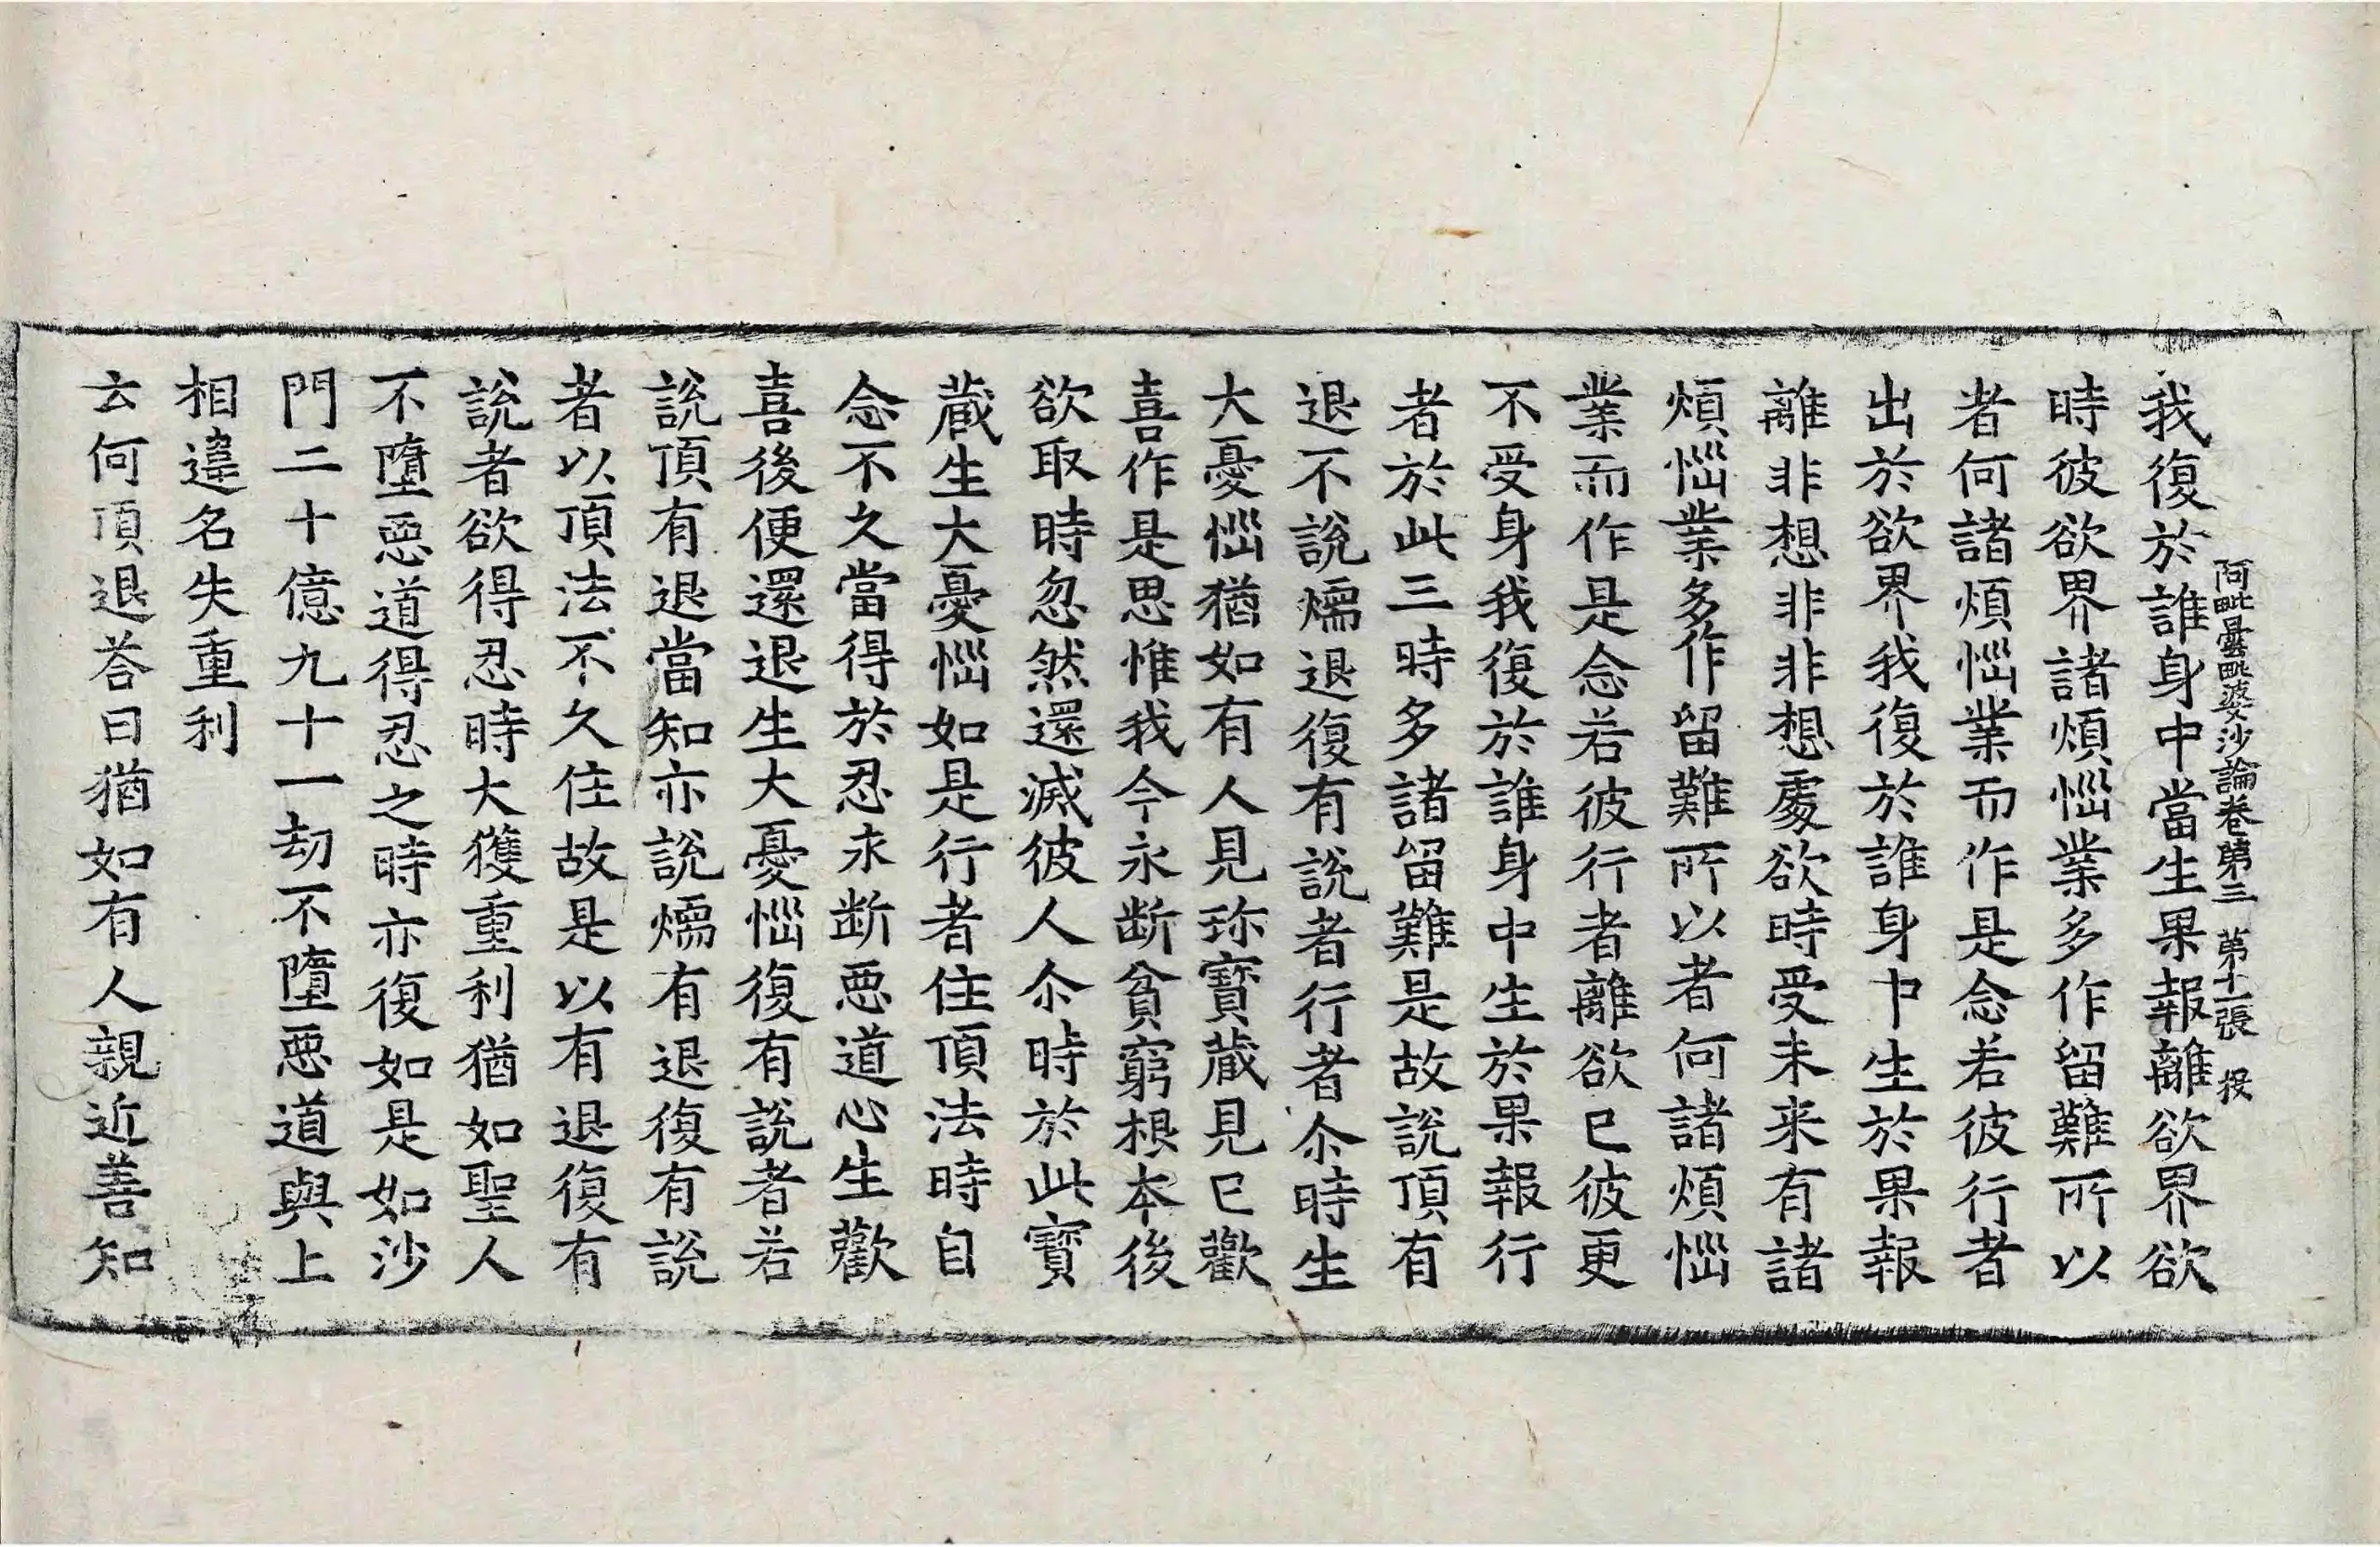 阿毗曇毗婆沙論卷第三 第十一張 投
我復於誰身中當生果報離欲界欲
時彼欲界諸煩惱業多作留難所以
者何諸煩惱業而作是念若彼行者
出於欲界我復於誰身中生於果報
離非想非非想處欲時受未來有諸
煩惱業多作留難所以者何諸煩惱
業而作是念若彼行者離欲已彼更
不受身我復於誰身中生於果報行
者於此三時多諸留難是故說頂有
退不說煗退復有說者行者尒時生
大憂惱猶如有人見珎寶藏見已歡
喜作是思惟我今永斷貧窮根本後
欲取時忽然還滅彼人尒時於此寶
藏生大憂惱如是行者住頂法時自
念不久當得於忍永斷惡道心生歡
喜後便還退生大憂惱復有說者若
說頂有退當知亦說煗有退復有說
者以頂法不久住故是以有退復有
說者欲得忍時大獲重利猶如聖人
不墮惡道得忍之時亦復如是如沙
門二十億九十一劫不墮惡道與上
相違名失重利
云何頂退荅曰猶如有人親近善知